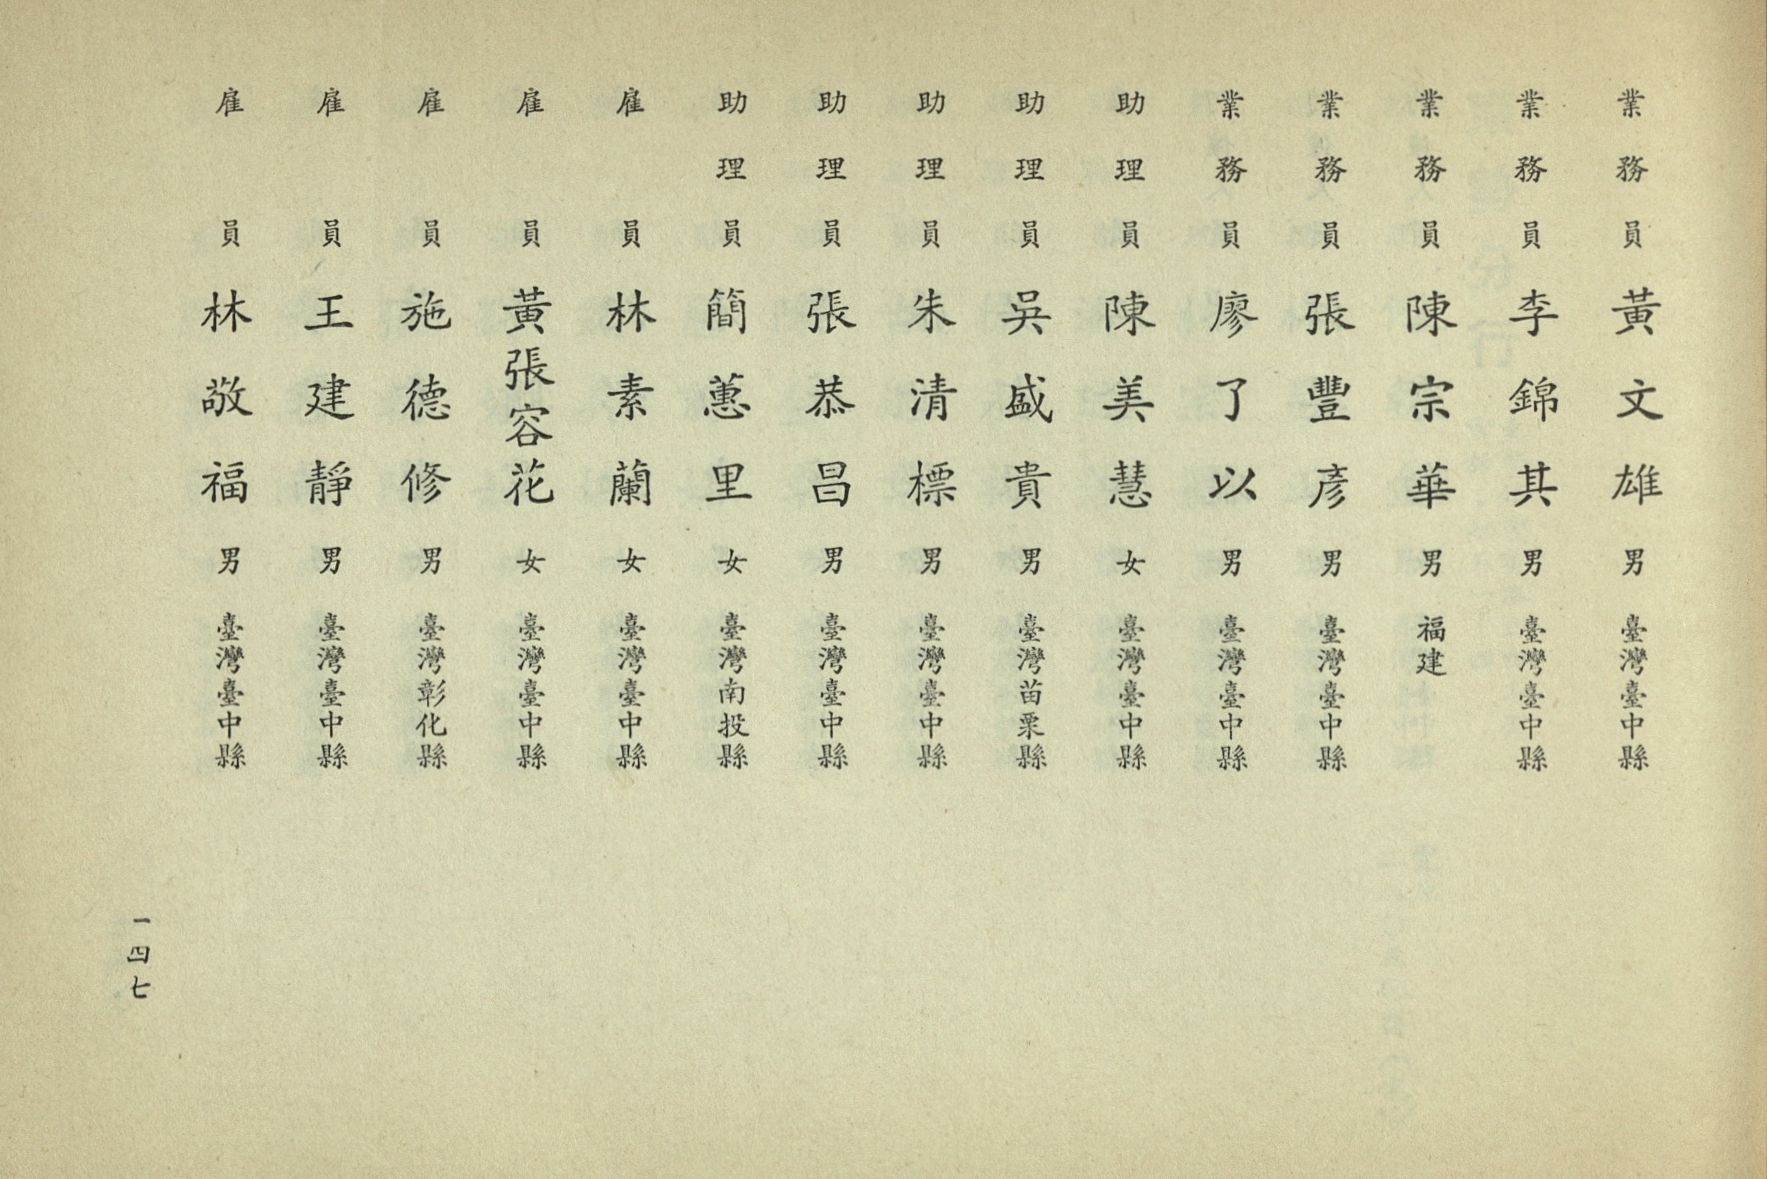 業務員 黃文雄 男 臺灣臺中縣
業務員 李錦其 男 臺灣臺中縣
業務員 陳宗華 男 福建
業務員 張豐彥 男 臺灣臺中縣
業務員 廖了以 男 臺灣臺中縣
助理員 陳美慧 女 臺灣臺中縣
助理員 吳盛貴 男 臺灣苗栗縣
助理員 朱清標 男 臺灣臺中縣
助理員 張恭昌 男 臺灣臺中縣
助理員 簡蕙里 女 臺灣南投縣
雇員 林素蘭 女 臺灣臺中縣
雇員 黃張容花 女 臺灣臺中縣
雇員 施德修 男 臺灣彰化縣
雇員 王建靜 男 臺灣臺中縣
雇員 林敬福 男 臺灣臺中縣
一四七